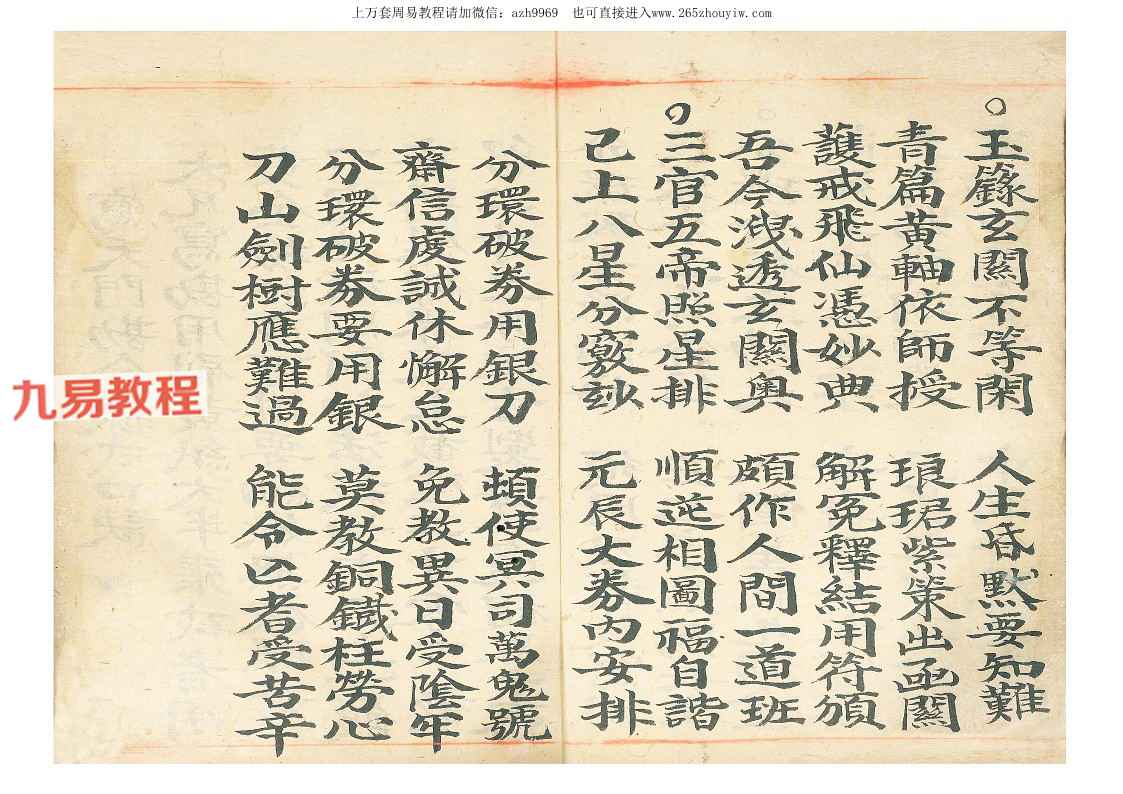 上万套周易教程请加微信：azh9969 也可直接进入www.265zhouyiw.com
○玉籙玄關不等閑 人生昏默要知難
青篇黄軸依師授 琅珺紫策出函關
護戒飛仙憑妙典 解冤釋結用符頒
吾今洩透玄關奥 頗作人間一道班
○三官五帝照星排 順逆相圖福自諧
己上八星分竅玅 元辰大券内安排
分環破券用銀刀 頓使冥司萬鬼號
齋信虔誠休懈怠 免教異日受陰牢
分環破券要用銀 莫教銅鐵柱勞心
刀山劍樹應難過 能令亡者受苦辛
九易教程